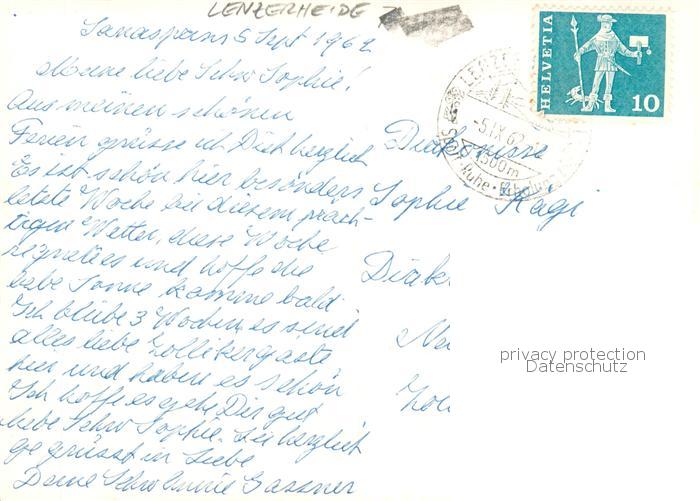 LENZERHEIDE
5 Sept 1962
Meine liebe Schw Sophie!
Aus meinen schönen
Ferien grüsse ich Dich herzlich
Es ist schön hier besonders
letzte Woche bei diesem präch-
tigen Wetter, diese Woche
regnet es und hoffe die
liebe Sonne komme bald
Ich bleibe 3 Wochen es sind
alles liebe Zollikergäste
hier und haben es schön
Ich hoffe es gehe Dir gut
liebe Schw Sophie. Sei herzlich
gegrüsst in Liebe
Deine Schw Annie Gassner
Diakonisse
Sophie Kägi
Diak
Ne
Zol
HELVETIA
10
LENZE
-5.IX.62
1500m
privacy protection
Datenschutz